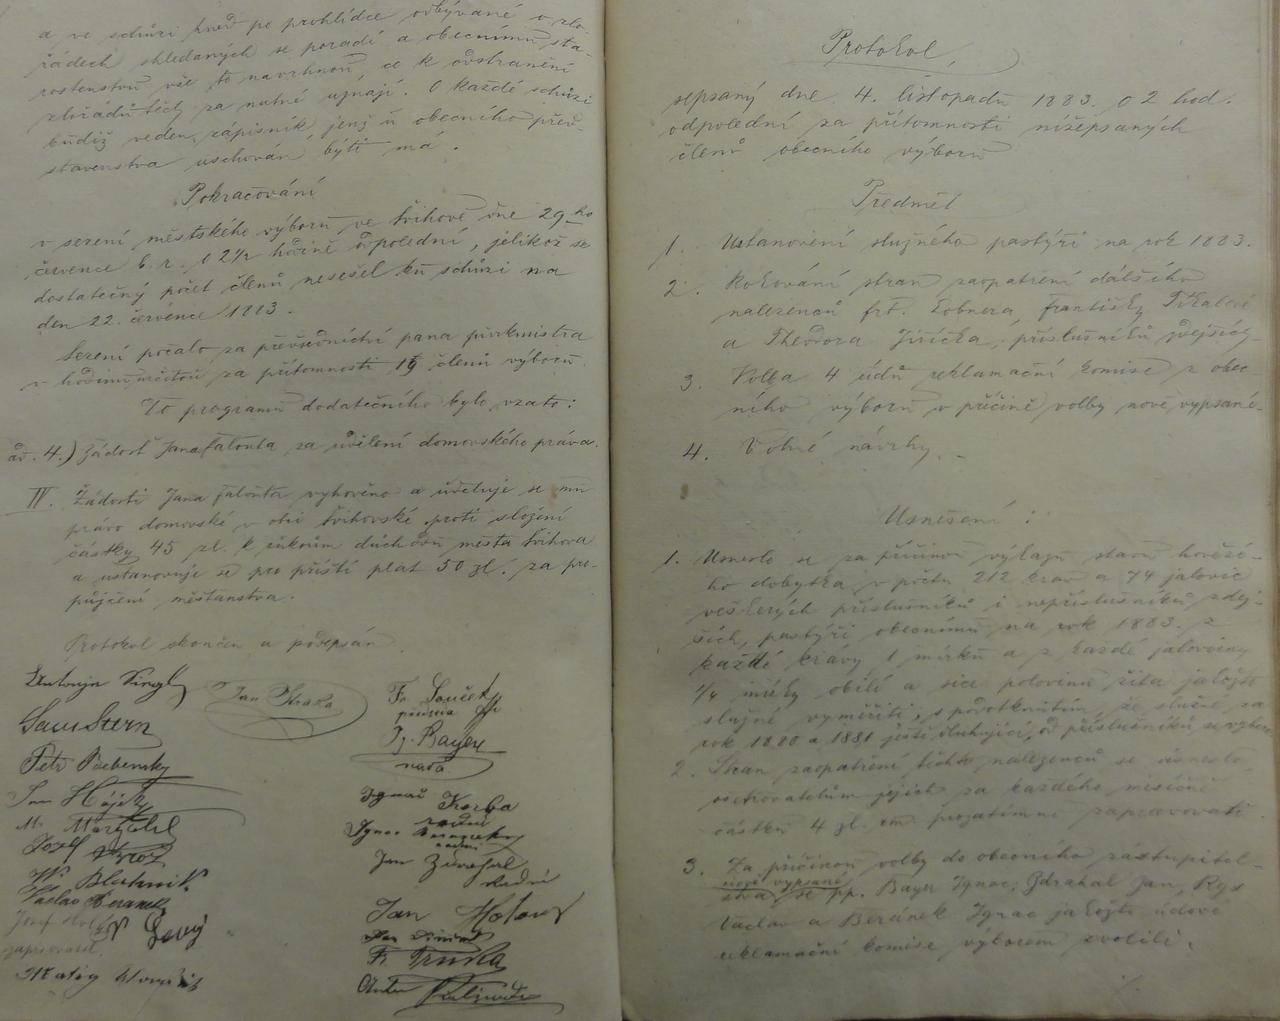 a ve schůzi hned po prohlídce odbývané o zlo-
řádech shledaných se poradí a obecnímu sta-
rostenstvu vše to navrhnou, co k odstranění
zlořádů těch za nutné uznají. O každé schůzi
budiž veden zápisník, jenž u obecního před-
stavenstva uschován býti má.
Pokračování
v sezení městského výboru ve Švihově dne 29ho
července b. r. o 2½ hodině odpolední, jelikož se
dostatečný počet členů nesešel ku schůzi na
den 22. července 1883.
Sezení počalo za předsednictví pana purkmistra
v hodinu určitou za přítomnosti členů výboru.
To programu dodatečného bylo vzato:
ad. 4.) Žádost Jana Falouta za udělení domovského práva.
IV. Žádosti Jana Falouta vyhověno a uděluje se mu
právo domovské v obci Švihovské proti složení
částky 45 zl. k rukoum důchodu města Švihova
a ustanovuje se pro příští plat 50 zl. za pro-
půjčení měšťanstva.
Protokol skončen a podepsán
Jan Straka
Fr. Souček
Sam Stern
Ig. Bayer
rada
Petr
Jan Hájek
Ignac
Korba
radní
Ignac Beranek
radní
Josef
Jan Zdrahal
radní
W. Blahnik
Václav Beranek
Josef
Levý
Jan
zapisovatel.
Fr. Truka
Matěj
Anton
Protokol,
sepsaný dne 4. listopadu 1883. o 2 hod.
odpolední za přítomnosti nížepsaných
členů obecního výboru
Předmět
1. Ustanovení služného pastýři na rok 1883.
2. Rokování stran zaopatření dalšího
nalezenců frt. Lobnera, Františky
a Theodora Jiříčka, příslušníků zdejších.
3. Volba 4 údů reklamační komise z obec-
ního výboru v příčině volby nově vypsané.
4. Volné návrhy.
Usnešení:
1. Usneslo se za příčinou výkazu stavu hověží-
ho dobytka v počtu 212 krav a 74 jalovic
veškerých příslušníků i nepříslušníků zdej-
ších, pastýři obecnímu na rok 1883. z
každé krávy 1 mírku a z každé jalovičiny
¼ mírky obilí a sice polovinu žita jakožto
služné vyměřiti, s podotknutím že služné za
rok 1880 a 1881 ještě dluhující, od příslušníků se vybere.
2. Stran zaopatření těchto nalezenců se usneslo
ošetřovatelům jejich za každého měsíčně
částku 4 zl. prozatímně zapravovati
3. Za příčinou volby do obecního zastupitel-
nově vypsané
stva se pp. Bayer Ignac, Zdrahal Jan, Rys
Václav a Beránek Ignac jakožto údové
reklamační komise výborem zvolili.